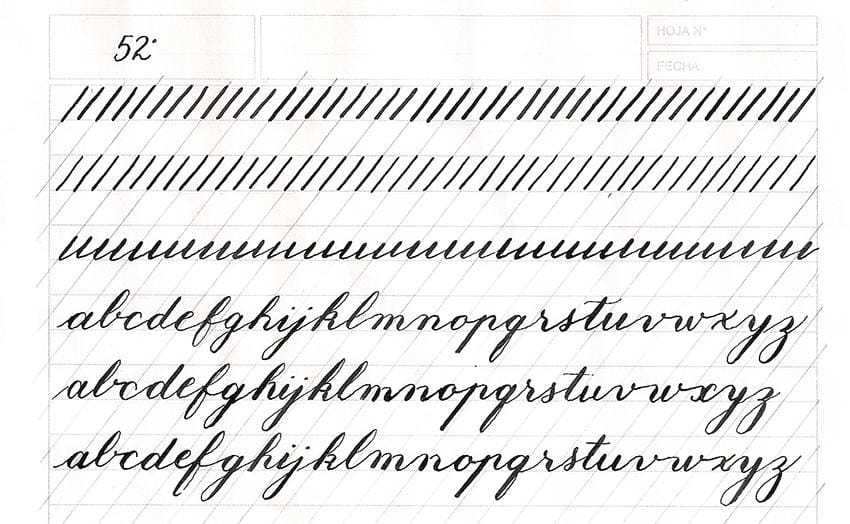 52°
HOJA N°
FECHA
abcdefghijklmnopqrstuvwxyz
abcdefghijklmnopqrstuvwxyz
abcdefghijklmnopqrstuvwxyz